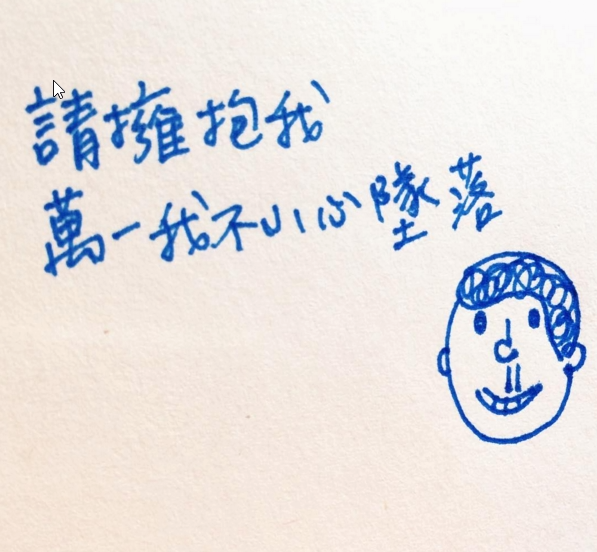 請擁抱我
萬一我不小心墜落